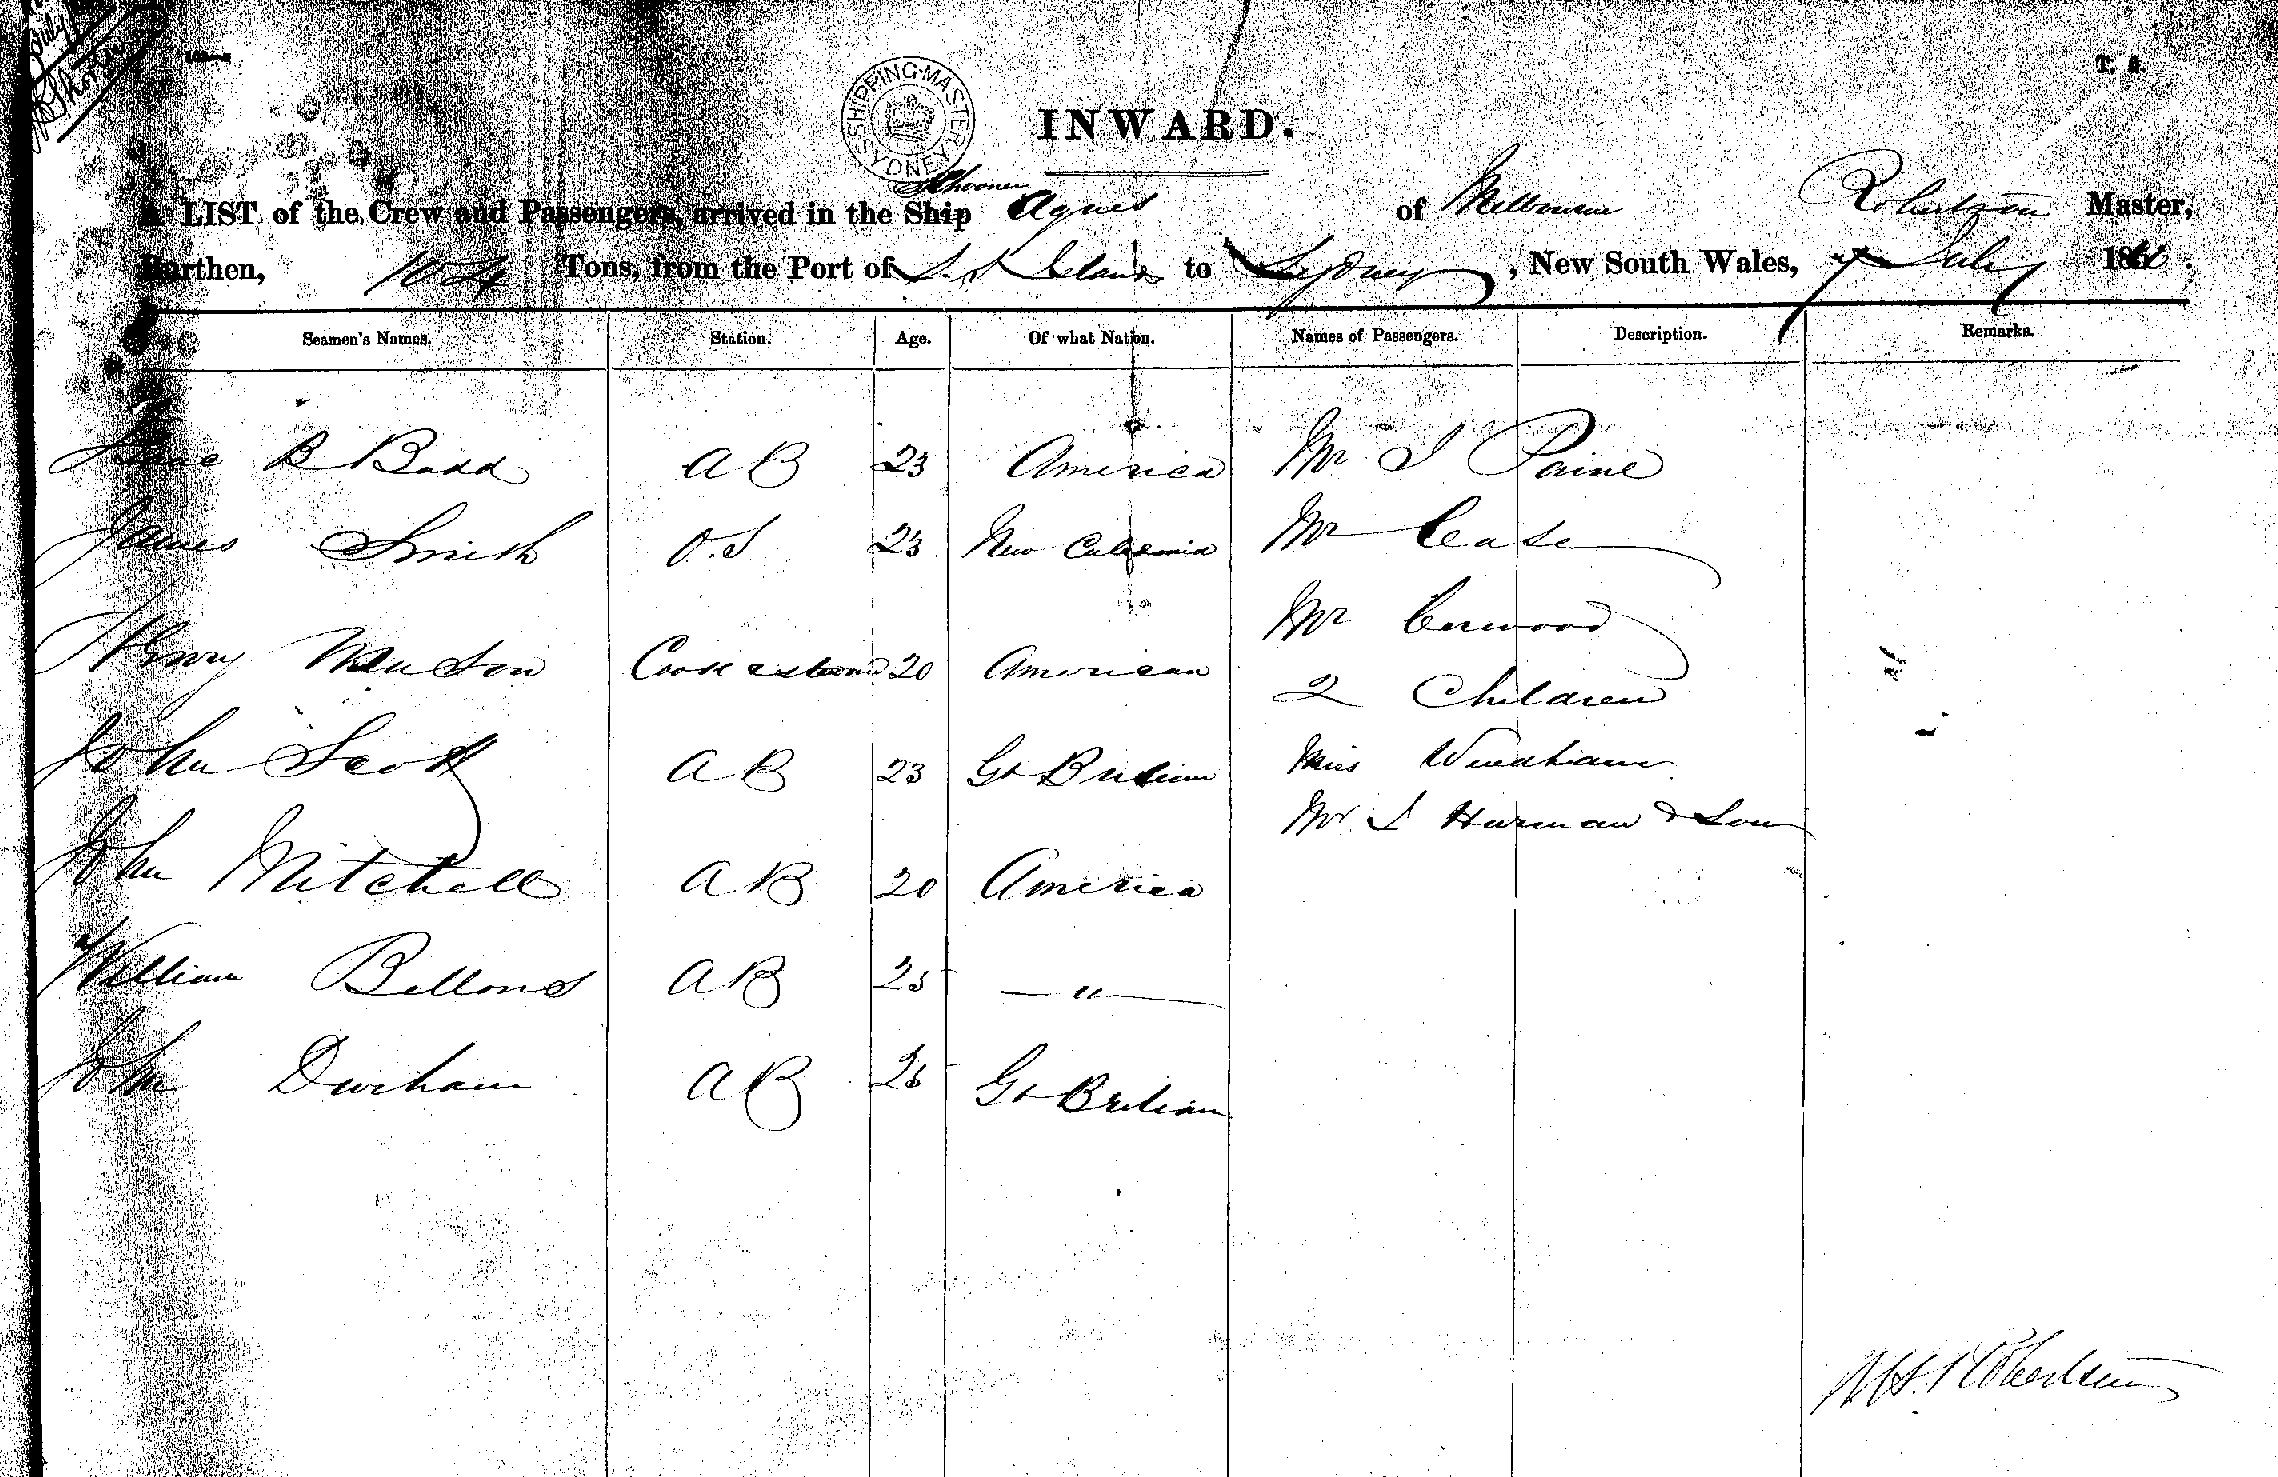 SHIPPING MASTER SYDNEY
T. S.
INWARD.
Schooner
A LIST of the Crew and Passengers, arrived in the Ship Agnes of Melbourne Robertson Master,
Burthen, 104 Tons, from the Port of S. S. Islands to Sydney, New South Wales, 7 July 1860.
Seamen's Names. Station. Age. Of what Nation. Names of Passengers. Description. Remarks.
B Badd A B 23 America Mr J Paine
James Smith O.S 23 New Caledonia Mr Case
Mr
Henry Cook 20 American
2 Children
John Scott A B 23 Gt Britian Miss Windham
Mr J Hurman & Son
John Mitchell A B 20 America
William Bellons A B 25 — " —
John Durham A B 25 Gt Britian
Robertson